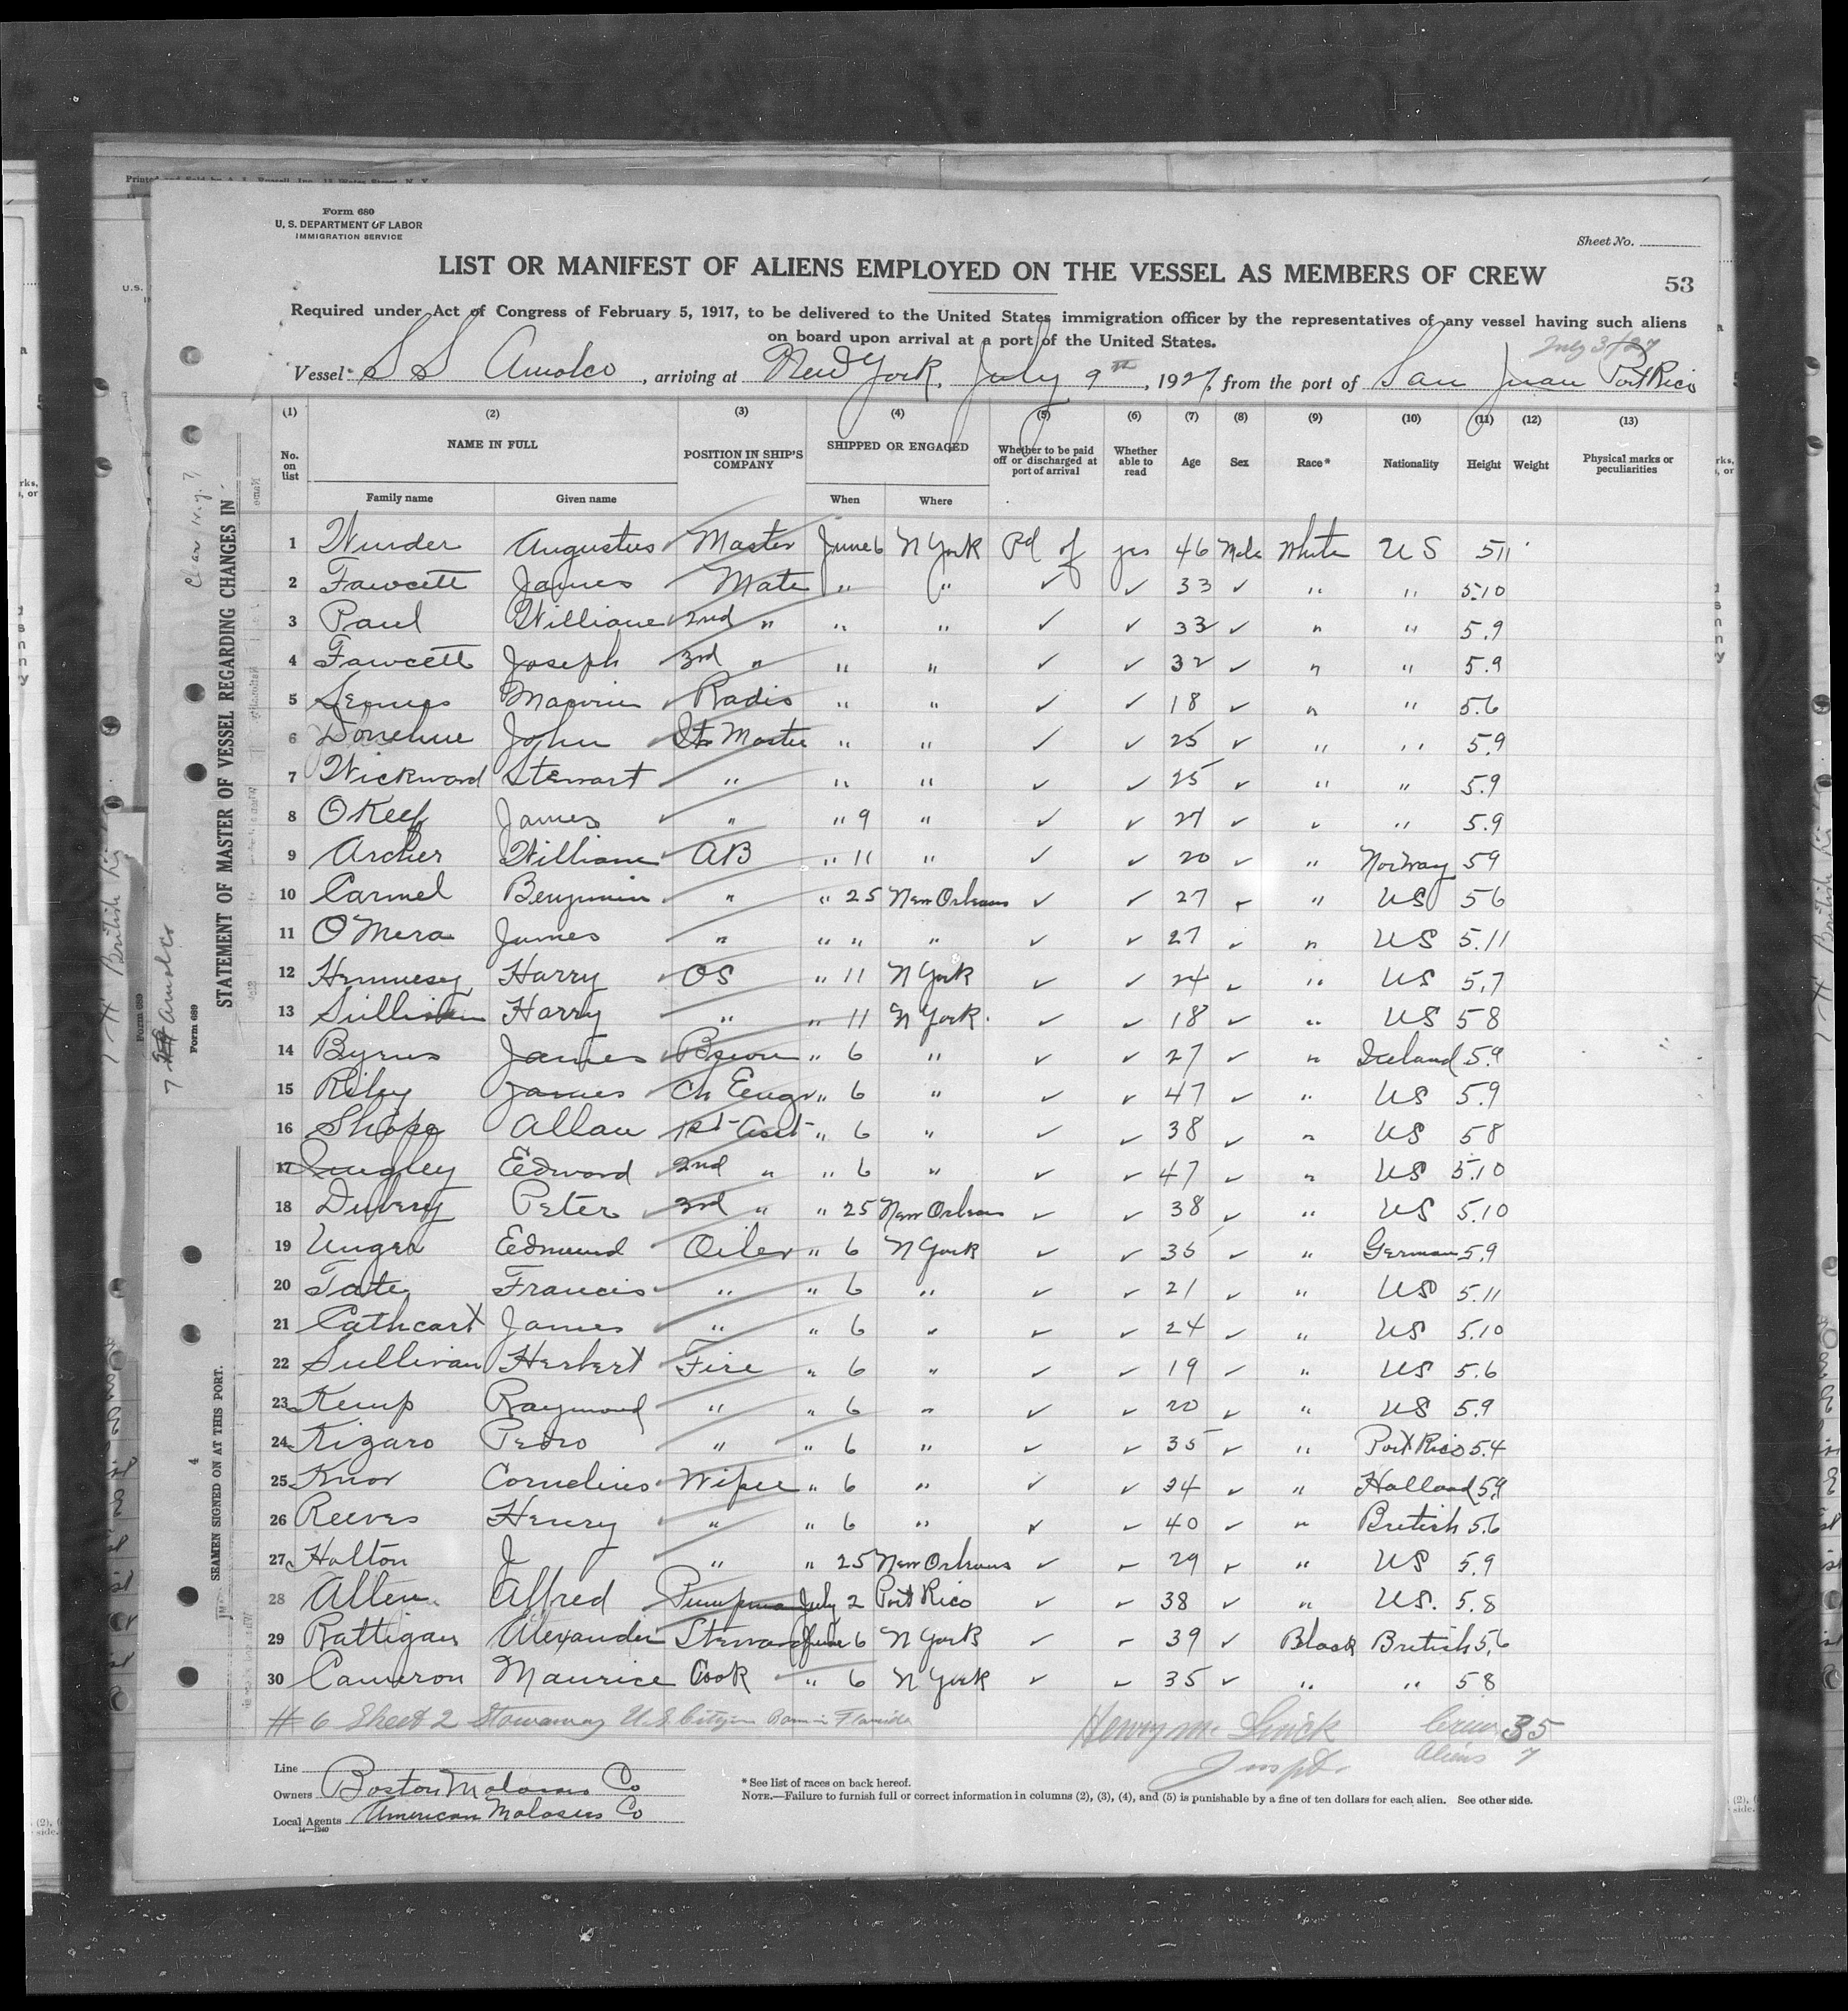 Form 680
U. S. DEPARTMENT OF LABOR
IMMIGRATION SERVICE
Sheet No.
LIST OR MANIFEST OF ALIENS EMPLOYED ON THE VESSEL AS MEMBERS OF CREW
53
Required under Act of Congress of February 5, 1917, to be delivered to the United States immigration officer by the representatives of any vessel having such aliens
on board upon arrival at a port of the United States.
July 3/27
Vessel SS Amolco, arriving at New York, July 9th, 1927, from the port of San Juan Port Rico
(1) (2) (3) (4) (5) (6) (7) (8) (9) (10) (11) (12) (13)
No. on list NAME IN FULL POSITION IN SHIP'S COMPANY SHIPPED OR ENGAGED Whether to be paid off or discharged at port of arrival Whether able to read Age Sex Race* Nationality Height Weight Physical marks or peculiarities
Family name Given name When Where
1 Wunder Augustus Master June 6 N York Pd of yes 46 Male White US 511
2 Fawcett James Mate " " ✓ ✓ 33 ✓ " " 5.10
3 Paul William 2nd " " " ✓ ✓ 33 ✓ " " 5.9
4 Fawcett Joseph 3rd " " " ✓ ✓ 32 ✓ " " 5.9
5 Radio " " ✓ ✓ 18 ✓ " " 5.6
6 Donehue John Master " " ✓ ✓ 25 ✓ " " 5.9
7 Wickward Stewart " " " ✓ ✓ 25 ✓ " " 5.9
8 OKeef James " " 9 " ✓ ✓ 27 ✓ " " 5.9
9 Archer William AB " 11 " ✓ ✓ 20 ✓ " Norway 59
10 Carmel Benjamin " " 25 New Orleans ✓ ✓ 27 ✓ " US 56
11 OMera James " " " " ✓ ✓ 27 ✓ " US 5.11
12 Hennesey Harry OS " 11 N York ✓ ✓ 24 ✓ " US 5.7
13 Sullivan Harry " " 11 N York. ✓ ✓ 18 ✓ " US 58
14 Byrns James " 6 " ✓ ✓ 27 ✓ " Iceland 5.9
15 Riley James Ch Engr " 6 " ✓ ✓ 47 ✓ " US 5.9
16 Allan 1st Asst " 6 " ✓ ✓ 38 ✓ " US 58
17 Edward 2nd " " 6 " ✓ ✓ 47 ✓ " US 5.10
18 Peter 3rd " " 25 New Orleans ✓ ✓ 38 ✓ " US 5.10
19 Unger Edmund Oiler " 6 N York ✓ ✓ 35 ✓ " German 5.9
20 Tate Francis " " 6 " ✓ ✓ 21 ✓ " US 5.11
21 Cathcart James " " 6 " ✓ ✓ 24 ✓ " US 5.10
22 Sullivan Herbert Fire " 6 " ✓ ✓ 19 ✓ " US 5.6
23 Kemp Raymond " " 6 " ✓ ✓ 20 ✓ " US 5.9
24 Kizaro Pedro " " 6 " ✓ ✓ 35 ✓ " Port Rico 5.4
25 Knor Cornelius Wiper " 6 " ✓ ✓ 24 ✓ " Holland 5.9
26 Reeves Henry " " 6 " ✓ ✓ 40 ✓ " British 5.6
27 Holton J " " 25 New Orleans ✓ ✓ 29 ✓ " US 5.9
28 Allen Alfred Pumpman July 2 Port Rico ✓ ✓ 38 ✓ " US. 5.8
29 Rattigan Alexander Steward June 6 N York ✓ ✓ 39 ✓ Black British 5.6
30 Cameron Maurice Cook " 6 N York ✓ ✓ 35 ✓ " " 58
# 6 Sheet 2 Stowaway U.S. Citizen Born in Florida
Crew 35
Aliens 7
Inspt.
Line
Owners Boston Molasses Co
Local Agents American Molasses Co
14—1240
* See list of races on back hereof.
NOTE.—Failure to furnish full or correct information in columns (2), (3), (4), and (5) is punishable by a fine of ten dollars for each alien. See other side.
STATEMENT OF MASTER OF VESSEL REGARDING CHANGES IN
Form 689
Amolco
SEAMEN SIGNED ON AT THIS PORT.
4